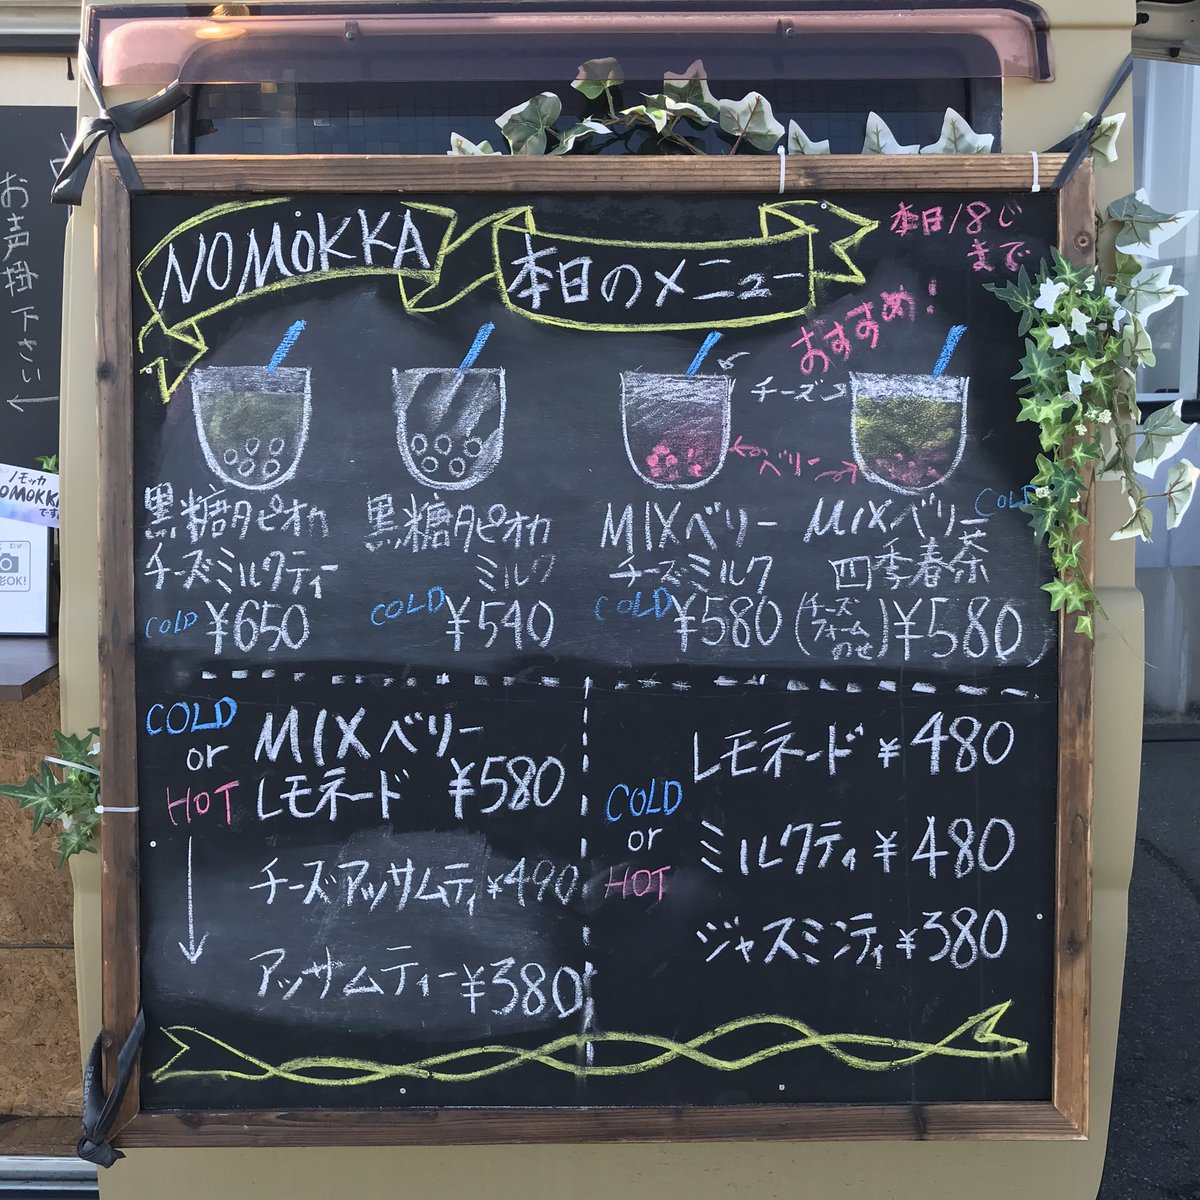 NOMOKKA
本日のメニュー
本日18じ
まで
おすすめ!
チーズ
ベリー
黒糖タピオカ
チーズミルクティー
COLD ¥650
黒糖タピオカ
ミルク
COLD ¥540
MIXベリー
チーズミルク
COLD ¥580
MIXベリー
COLD
四季春茶
(チーズ
フォーム
のせ) ¥580
COLD
or
HOT
MIXベリー
レモネード ¥580
チーズアッサムティ ¥490
アッサムティー ¥380
COLD
or
HOT
レモネード ¥480
ミルクティ ¥480
ジャスミンティ ¥380
お声掛下さい
ノモッカ
NOMOKKA
です
OK!